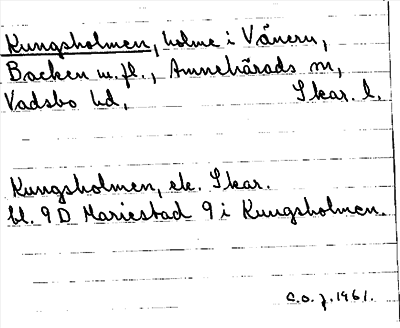 Kungsholmen, holme i Vänern,
Backen m.fl., Amnehärads sn,
Vadsbo hd, Skar. l.
Kungsholmen, ek. Skar.
bl. 9D Mariestad 9 i Kungsholmen.
C.O.J. 1961.